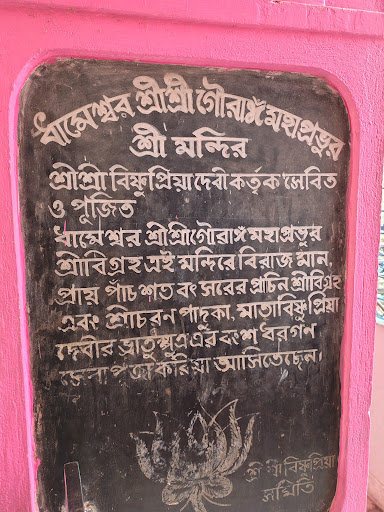 ধামেশ্বর শ্রীশ্রী গৌরাঙ্গ মহাপ্রভুর
শ্রী মন্দির
শ্রীশ্রী বিষ্ণুপ্রিয়া দেবী কর্তৃক সেবিত
ও পূজিত
ধামেশ্বর শ্রীশ্রীগৌরাঙ্গ মহাপ্রভুর
শ্রীবিগ্রহ এই মন্দিরে বিরাজ মান,
প্রায় পাঁচ শত বৎসরের প্রচিন শ্রীবিগ্রহ
এবং শ্রীচরণ পাদুকা, মাতাবিষ্ণুপ্রিয়া
দেবীর ভ্রাতুষ্পুত্র এর বংশ ধরগন
সেবা পূজা করিয়া আসিতেছেন।
শ্রী শ্রী বিষ্ণুপ্রিয়া
সমিতি